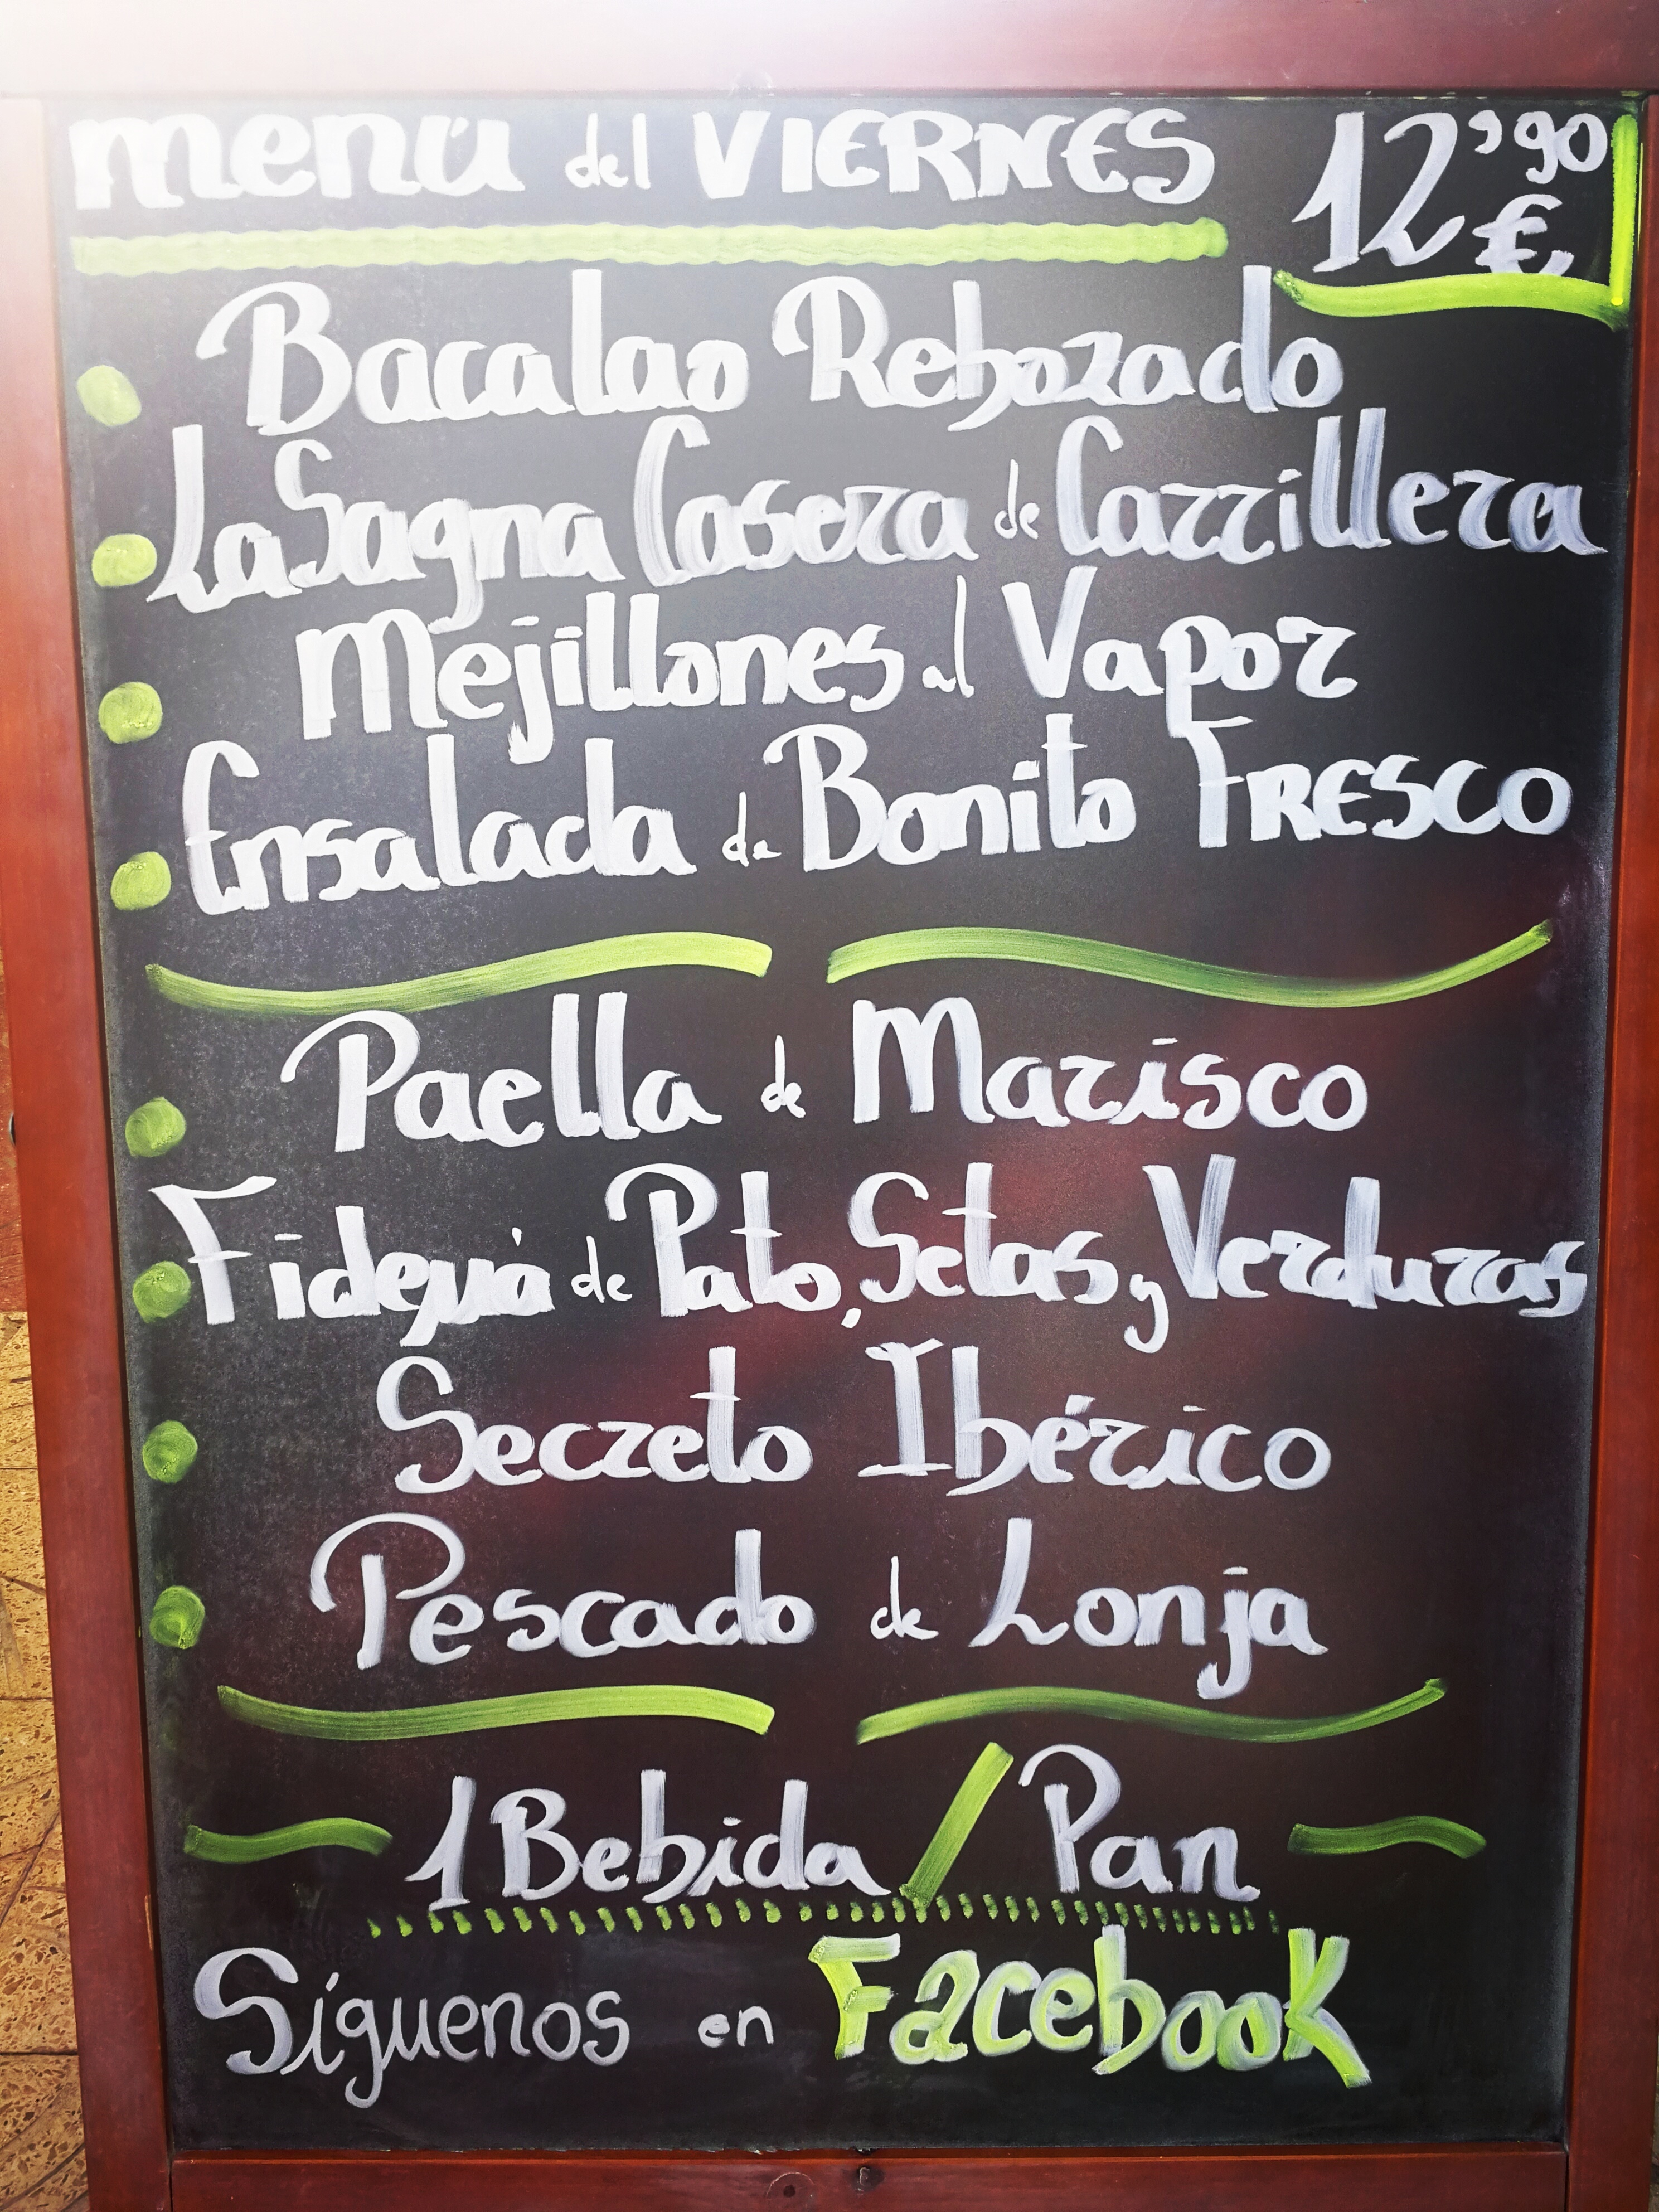 menú del VIERNES 12'90 €
Bacalao Rebozado
LaSagna Casera de Carrillera
Mejillones al Vapor
Ensalada de Bonito FRESCO
Paella de Marisco
Fideuá de Pato, Setas y Verduras
Secreto Ibérico
Pescado de Lonja
1 Bebida / Pan
Síguenos en Facebook